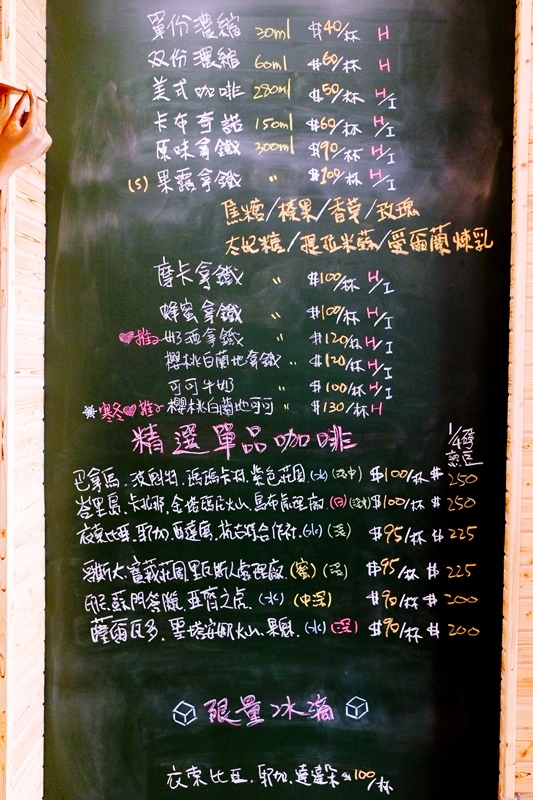 單份濃縮 30ml $40/杯 H
双份濃縮 60ml $60/杯 H
美式咖啡 280ml $50/杯 H/I
卡布奇諾 150ml $60/杯 H/I
原味拿鐵 300ml $90/杯 H/I
(S) 果露拿鐵 〃 $100/杯 H/I
焦糖/榛果/香草/玫瑰
太妃糖/提拉米蘇/愛爾蘭煉乳
摩卡拿鐵 〃 $100/杯 H/I
蜂蜜拿鐵 〃 $100/杯 H/I
推 奶酒拿鐵 〃 $120/杯 H/I
櫻桃白蘭地拿鐵 〃 $120/杯 H/I
可可牛奶 〃 $100/杯 H/I
寒冬 推 櫻桃白蘭地可可 〃 $130/杯 H
精選單品咖啡 1/4磅 熟豆
巴拿馬. 瑪瑪卡塔. 紫色莊園 (水) $100/杯 $250
峇里島. 卡北那. 火山. 處理廠 (日) $100/杯 $250
衣索比亞. 耶加. 合作社. (水) (淺) $95/杯 $225
莊園 處理廠. (蜜) (淺) $95/杯 $225
印尼. 蘇門答臘. 亞齊之虎. (水) (中深) $90/杯 $200
薩爾瓦多. 聖塔安娜火山. (水) (深) $90/杯 $200
限量冰滴
衣索比亞. 耶加. $100/杯